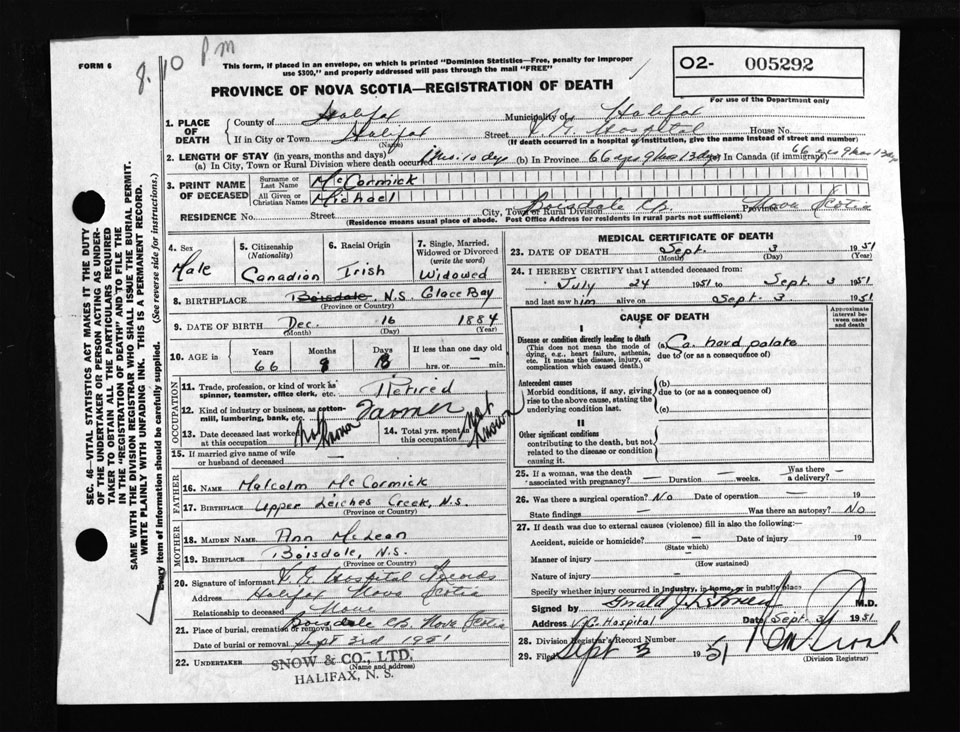 8.10 Pm
FORM 6
This form, if placed in an envelope, on which is printed "Dominion Statistics—Free, penalty for improper
use $300," and properly addressed will pass through the mail "FREE"
PROVINCE OF NOVA SCOTIA—REGISTRATION OF DEATH
O2- 005292
For use of the Department only
1. PLACE OF DEATH
County of Halifax Municipality of Halifax
If in City or Town Halifax Street V. G. Hospital House No.
(Name) (If death occurred in a hospital or institution, give the name instead of street and number)
2. LENGTH OF STAY (in years, months and days)
(a) In City, Town or Rural Division where death occurred 10 dys (b) In Province 66 yrs 9 mos 13 dys In Canada (if immigrant) 66 yrs
3. PRINT NAME OF DECEASED
Surname or Last Name McCormick
All Given or Christian Names Michael
RESIDENCE No. Street City, Town or Rural Division Boisdale C.B. Province Nova Scotia
(Residence means usual place of abode. Post Office Address for residents in rural parts not sufficient)
4. Sex Male
5. Citizenship (Nationality) Canadian
6. Racial Origin Irish
7. Single, Married, Widowed or Divorced (write the word) Widowed
8. BIRTHPLACE Boisdale, N.S. Glace Bay
(Province or Country)
9. DATE OF BIRTH Dec. 16 1884
(Month) (Day) (Year)
10. AGE in Years Months Days If less than one day old
66 hrs. or — min.
OCCUPATION
11. Trade, profession, or kind of work as spinner, teamster, office clerk, etc. Retired
12. Kind of industry or business, as cotton-mill, lumbering, bank, etc. Farmer
13. Date deceased last worked at this occupation Not Known
14. Total yrs. spent in this occupation Not Known
15. If married give name of wife or husband of deceased —
FATHER
16. Name Malcolm McCormick
17. Birthplace Upper Leiches Creek, N.S.
(Province or Country)
MOTHER
18. MAIDEN NAME Ann McLean
19. BIRTHPLACE Boisdale, N.S.
(Province or Country)
20. Signature of informant V. G. Hospital Records
Address Halifax Nova Scotia
Relationship to deceased None
21. Place of burial, cremation or removal Boisdale CB Nova Scotia
Date of burial or removal Sept 3rd 1951
22. UNDERTAKER SNOW & CO., LTD.
(Name and address)
HALIFAX, N. S.
MEDICAL CERTIFICATE OF DEATH
23. DATE OF DEATH Sept. 3 1951
(Month) (Day) (Year)
24. I HEREBY CERTIFY that I attended deceased from:
July 24 1951 to Sept. 3 1951
and last saw him alive on Sept. 3 1951
CAUSE OF DEATH
Approximate interval between onset and death
I
Disease or condition directly leading to death
(This does not mean the mode of dying, e.g., heart failure, asthenia, etc. It means the disease, injury, or complication which caused death.)
(a) Ca. hard palate
due to (or as a consequence of)
Antecedent causes
Morbid conditions, if any, giving rise to the above cause, stating the underlying condition last.
(b)
due to (or as a consequence of)
(c)
II
Other significant conditions
contributing to the death, but not related to the disease or condition causing it.
25. If a woman, was the death associated with pregnancy? — Duration — weeks. Was there a delivery? —
26. Was there a surgical operation? No Date of operation — 19
State findings — Was there an autopsy? No
27. If death was due to external causes (violence) fill in also the following:—
Accident, suicide or homicide? — Date of injury — 19
(State which)
Manner of injury —
(How sustained)
Nature of injury —
Specify whether injury occurred in industry, in home, or in public place
Signed by M.D.
Address V.G. Hospital Date Sept. 3 1951
28. Division Registrar's Record Number
29. Filed Sept 3 1951
(Division Registrar)
SEC. 46—VITAL STATISTICS ACT MAKES IT THE DUTY
OF THE UNDERTAKER OR PERSON ACTING AS UNDER-
TAKER TO OBTAIN ALL THE PARTICULARS REQUIRED
IN THE "REGISTRATION OF DEATH" AND TO FILE THE
SAME WITH THE DIVISION REGISTRAR WHO SHALL ISSUE THE BURIAL PERMIT.
WRITE PLAINLY WITH UNFADING INK. THIS IS A PERMANENT RECORD.
Every item of information should be carefully supplied. (See reverse side for instructions.)